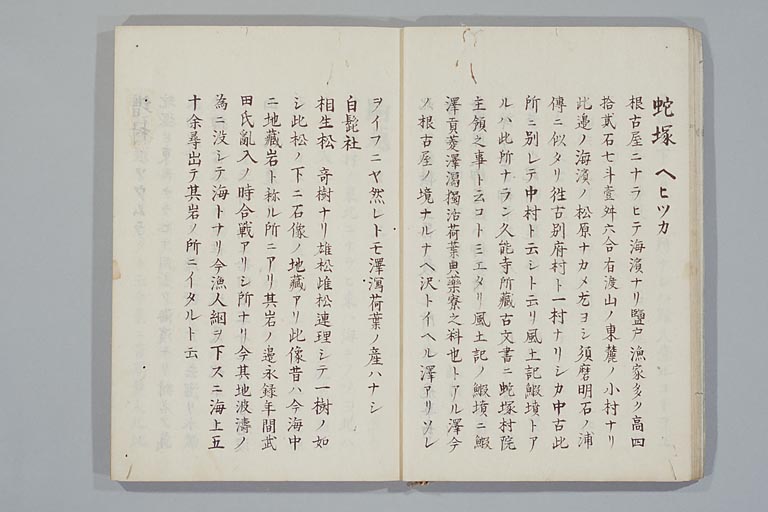 蛇塚 ヘヒツカ
根古屋ニナラヒテ海濱ナリ鹽戸漁家多ク高四
拾貳石七斗壹舛六合有渡山ノ東麓ノ小村ナリ
此邊ノ海濱ノ松原ナカメ尤ヨシ須磨明石ノ浦
傳ニ似タリ徃古別府村ト一村ナリシカ中古此
所ニ別レテ中村ト云シト云リ風土記蝦墳トア
ルハ此所ナラン久能寺所藏古文書ニ蛇塚村院
主領之事ト云コトミエタリ風土記ノ蝦墳ニ蝦
澤貢菱澤瀉獨活荷葉典藥寮之料也トアル澤今
ノ根古屋ノ境ナルナヘ沢トイヘル澤アリソレ
ヲイフニヤ然レトモ澤瀉荷葉ノ産ハナシ
白髭社
相生松 竒樹ナリ雄松雌松連理シテ一樹ノ如
シ此松ノ下ニ石像ノ地藏アリ此像昔ハ今海中
ニ地藏岩ト称ル所ニアリ其岩ノ邊永録年間武
田氏亂入ノ時合戰アリシ所ナリ今其地波濤ノ
為ニ没シテ海トナリ今漁人網ヲ下スニ海上五
十余尋出テ其岩ノ所ニイタルト云